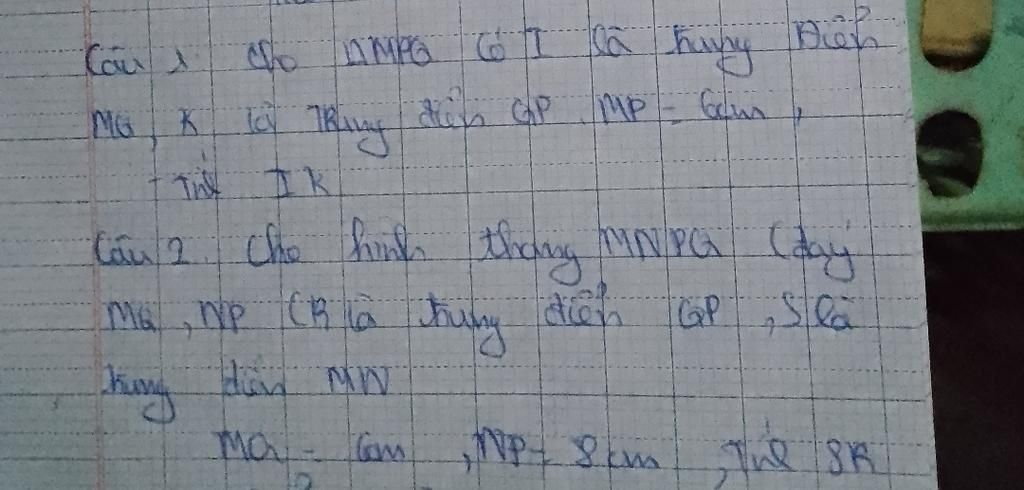 Câu 1 cho ΔMPQ có I là trung điểm
MQ, K là Trung điểm QP MP = 6cm,
Tính IK
Câu 2. Cho hình thang MNPQ (đáy
MQ, NP (R là trung điểm QP, S là
trung điểm MN
MQ = 6cm, NP = 8cm, Tính SR